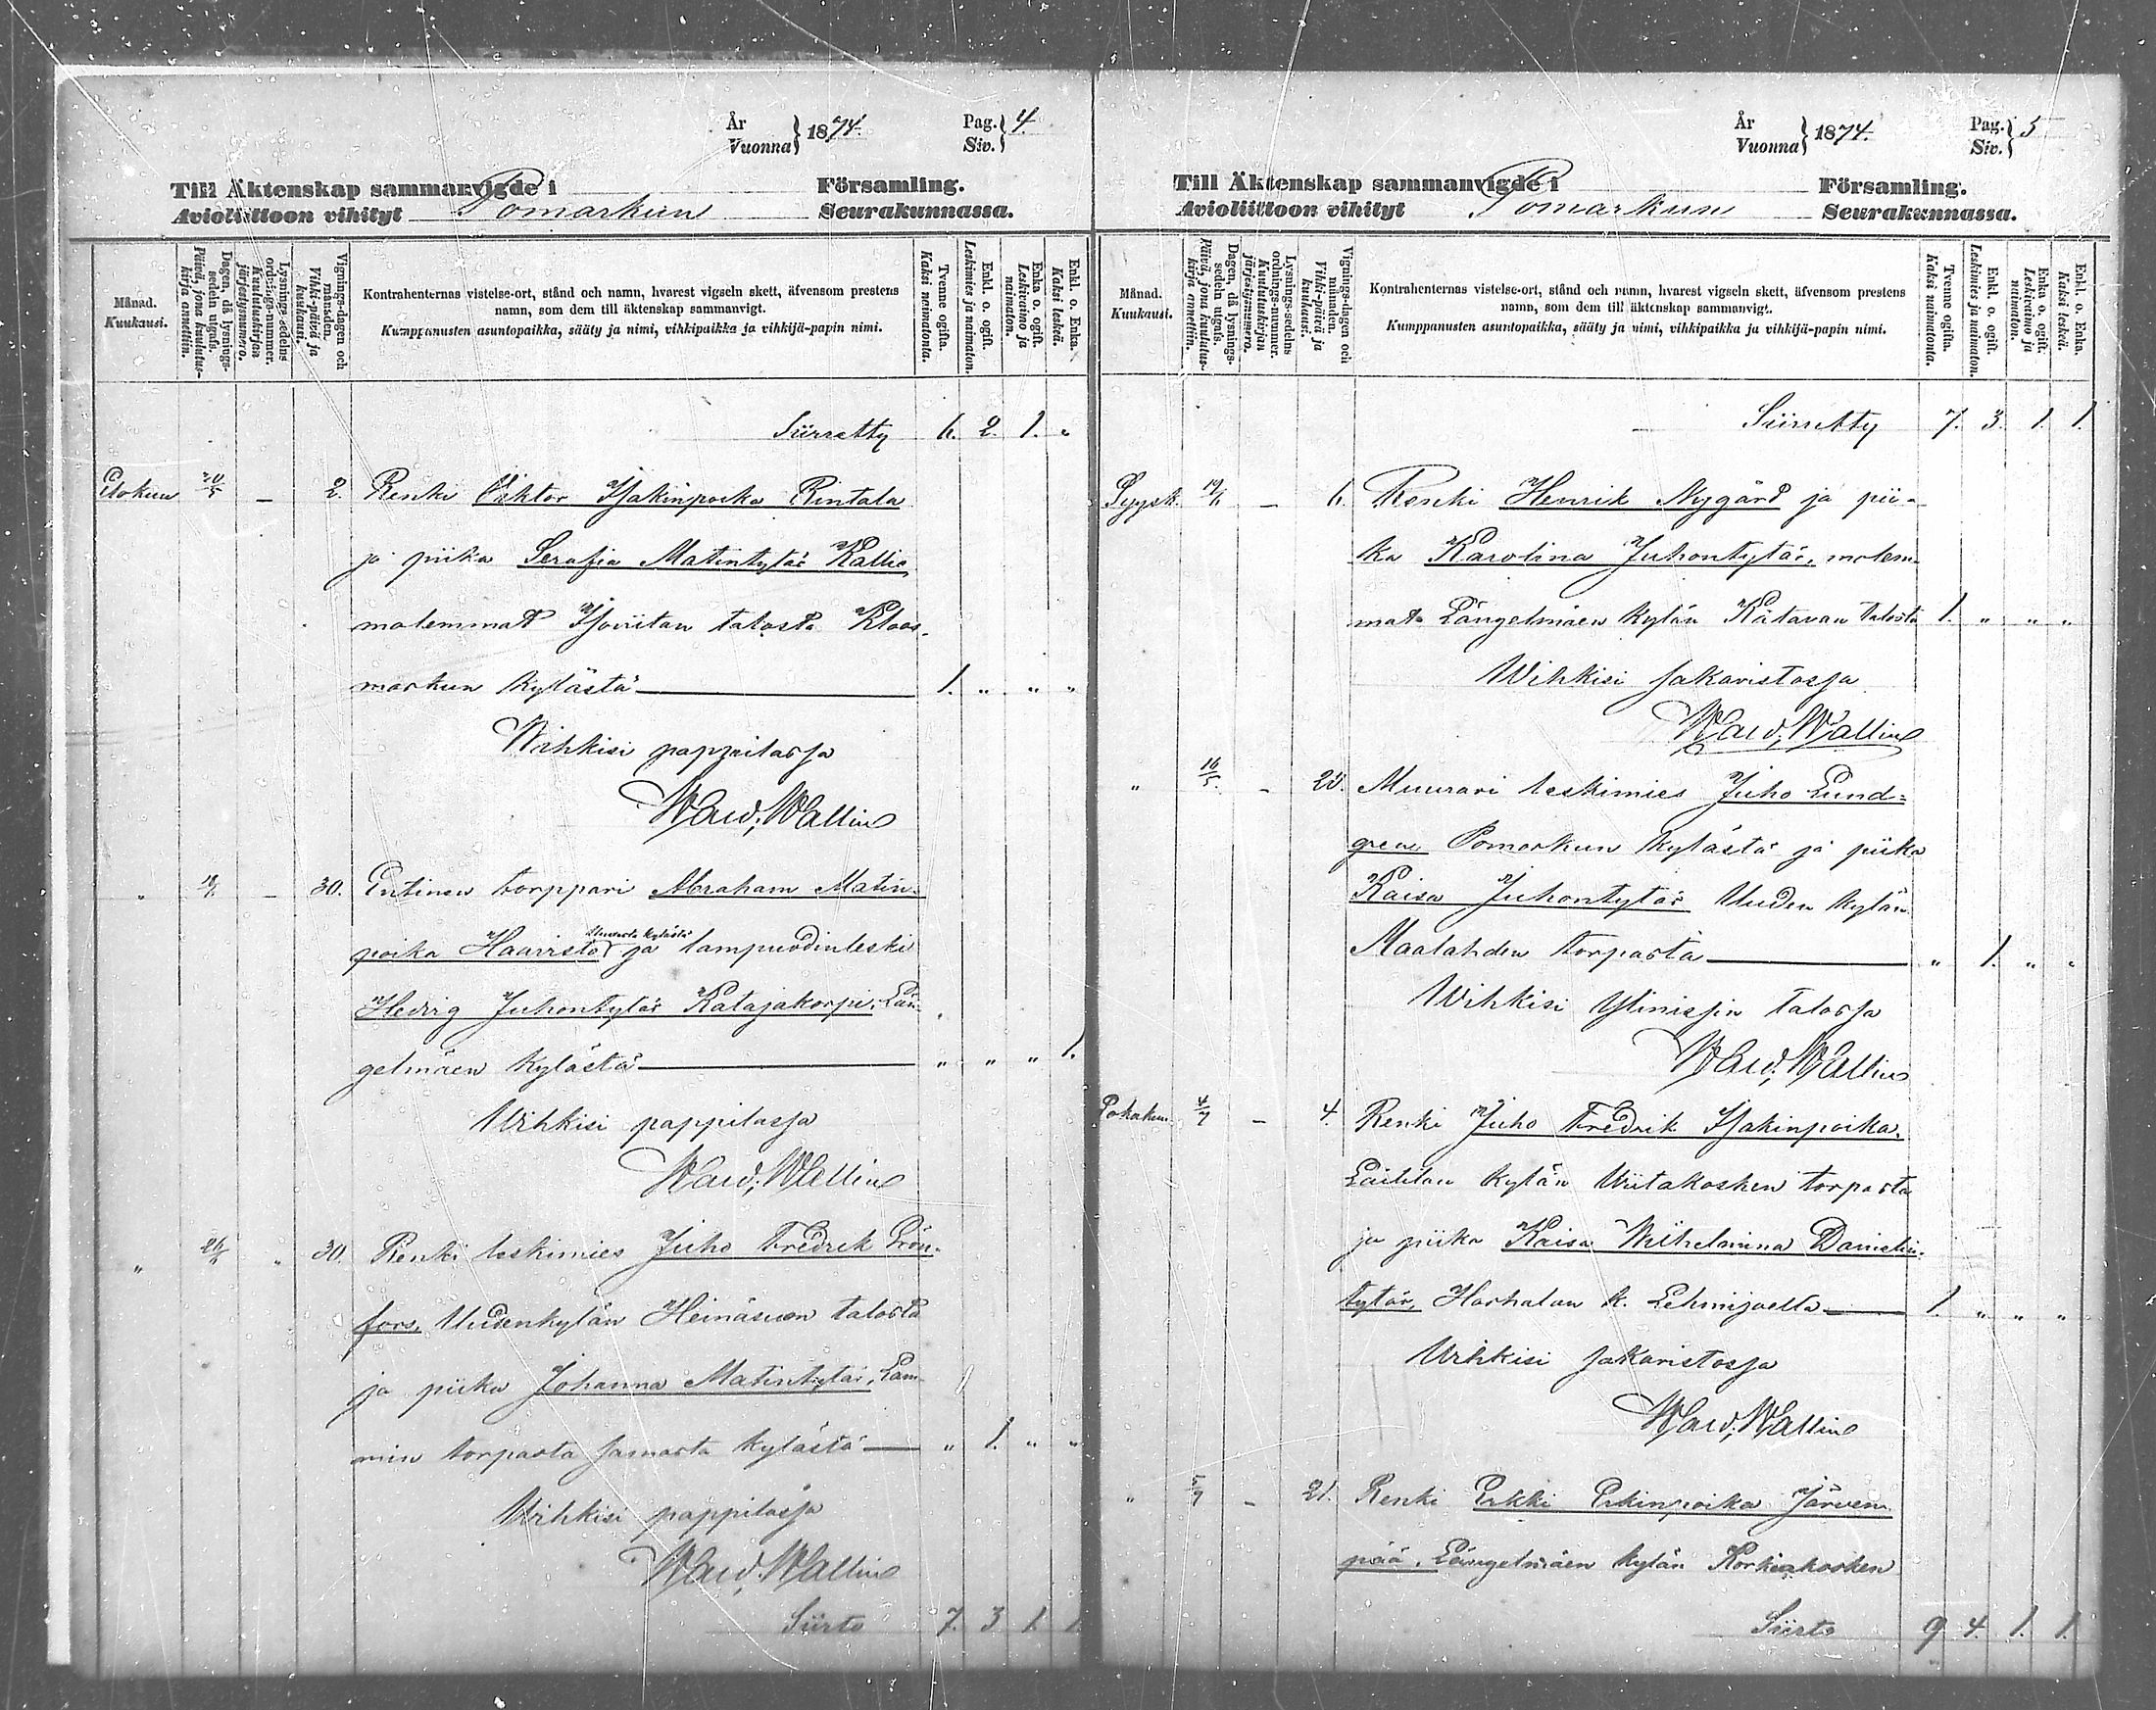 År
Vuonna } 1874. Pag.
Siv. } 4
Till Äktenskap sammanvigde i Församling.
Avioliittoon vihityt Pomarkun Seurakunnassa.
Månad.
Kuukausi.
Dagen, då lysnings-sedeln utgafs.
Päivä, jona kuulutus-kirja annettiin.
Lysnings-sedelns ordnings-nummer.
Kuulutuskirjan järjestysnumero.
Vignings-dagen och månaden.
Vihki-päivä ja kuukausi.
Kontrahenternas vistelse-ort, stånd och namn, hvarest vigseln skett, äfvensom prestens
namn, som dem till äktenskap sammanvigt.
Kumppanusten asuntopaikka, sääty ja nimi, vihkipaikka ja vihkijä-papin nimi.
Tvenne ogifta.
Kaksi naimatonta.
Enkl. o. ogift.
Leskimies ja naimaton.
Enka o. ogift.
Leskivaimo ja naimaton.
Enkl. o. Enka.
Kaksi leskeä.
Siirretty 6. 2. 1. "
Elokuu 20/5 — 2. Renki Viktor Isakinpoika Rintala
ja piika Serafia Matintytär Kallio
molemmat talosta Kloos-
markun kylästä 1. " " "
Wihkisi pappilassa
Wald. Wallin
" — 30. Entinen torppari Abraham Matin-
poika Haavisto ja lampuodinleski
Hedvig Juhontytär Katajakorpi, Län-
gelmäen kylästä " " " 1.
Wihkisi pappilassa
Wald. Wallin
" " 30. Renki leskimies Juho Fredrik Grön-
fors, Uudenkylän Heinäsuon talosta
ja piika Johanna Matintytär, Lam-
min torpasta samasta kylästä " 1. " "
Wihkisi pappilassa
Wald. Wallin
Siirto 7. 3 1. 1.
År
Vuonna } 1874. Pag.
Siv. } 5
Till Äktenskap sammanvigde i Församling.
Avioliittoon vihityt Pomarkun Seurakunnassa.
Månad.
Kuukausi.
Dagen, då lysnings-sedeln utgafs.
Päivä, jona kuulutus-kirja annettiin.
Lysnings-sedelns ordnings-nummer.
Kuulutuskirjan järjestysnumero.
Vignings-dagen och månaden.
Vihki-päivä ja kuukausi.
Kontrahenternas vistelse-ort, stånd och namn, hvarest vigseln skett, äfvensom prestens
namn, som dem till äktenskap sammanvigt.
Kumppanusten asuntopaikka, sääty ja nimi, vihkipaikka ja vihkijä-papin nimi.
Tvenne ogifta.
Kaksi naimatonta.
Enkl. o. ogift.
Leskimies ja naimaton.
Enka o. ogift.
Leskivaimo ja naimaton.
Enkl. o. Enka.
Kaksi leskeä.
Siirretty 7. 3. 1. 1.
Syysk. — 6. Renki Henrik Nygård ja pii-
ka Karolina Juhontytär, molem-
mat Längelmäen kylän Kätavan talosta 1. " " "
Wihkisi sakaristossa
Wald. Wallin
" 16/5. — Muurari leskimies Juho Lund-
gren Pomarkun kylästä ja piika
Kaisa Juhontytär Uuden kylän
Maalahden torpasta " 1. " "
Wihkisi Ylinissin talossa
Wald. Wallin
Lokakuu 4/7 — 4. Renki Juho Fredrik Isakinpoika,
kylän Wiitakosken torpasta
ja piika Kaisa Wilhelmina Danielin-
tytär, Harhalan k. Lehmijoelta 1. " " "
Wihkisi sakaristossa
Wald. Wallin
" — 21. Renki Erkki Erkinpoika Järven-
pää, Längelmäen kylän Korkiakosken
Siirto 9 4. 1. 1.